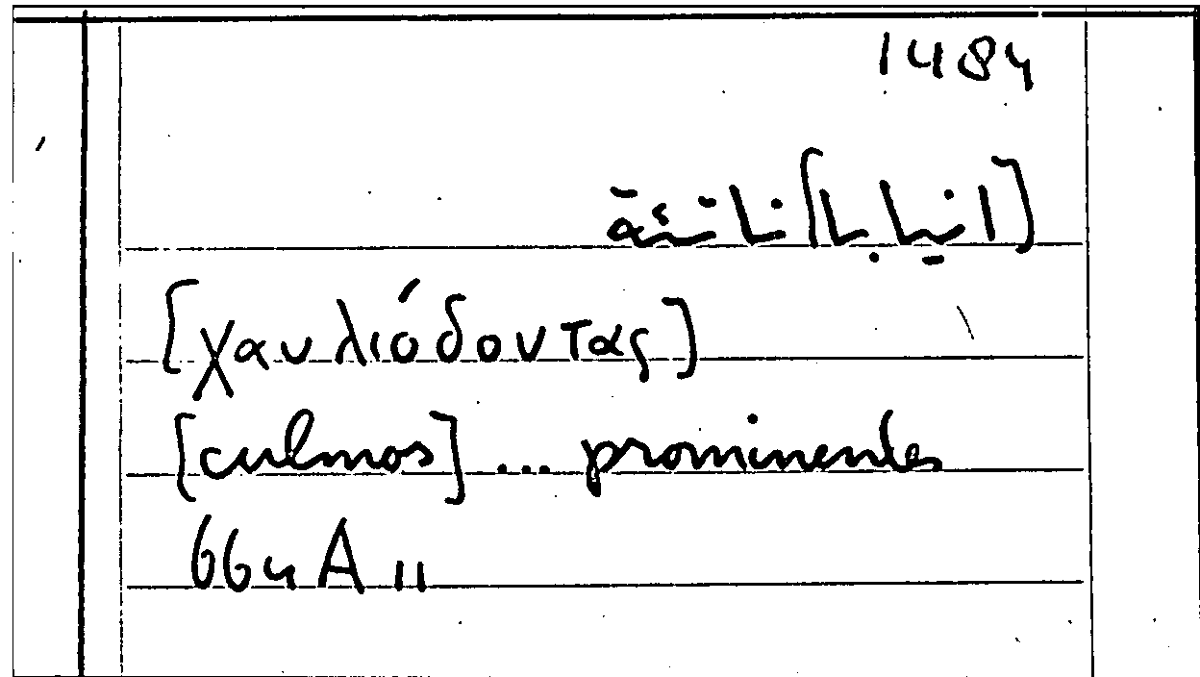 1484
[انيابا] ناتئة
[χαυλιόδοντας]
[culmos] ... prominentes
664 A 11